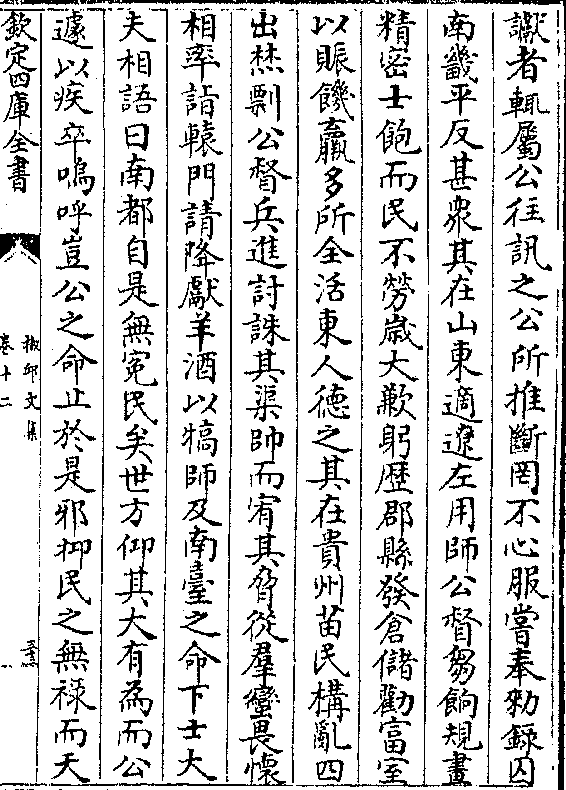 讞者輒屬公往訊之公所推斷罔不心服嘗奉勑錄囚
南畿平反甚衆其在山東適遼左用師公督芻餉規畫
精密士飽而民不勞歲大歉躬歷郡縣發倉儲勸富室
以賑饑羸多所全活東人德之其在貴州苗民構亂四
出焚剽公督兵進討誅其渠帥而宥其脅從羣蠻畏懷
相率詣轅門請降獻羊酒以犒師及南臺之命下士大
夫相語曰南都自是無冤民矣世方仰其大有為而公
遽以疾卒嗚呼豈公之命止於是邪抑民之無祿而天
欽定四庫全書
椒邱文集
卷十二